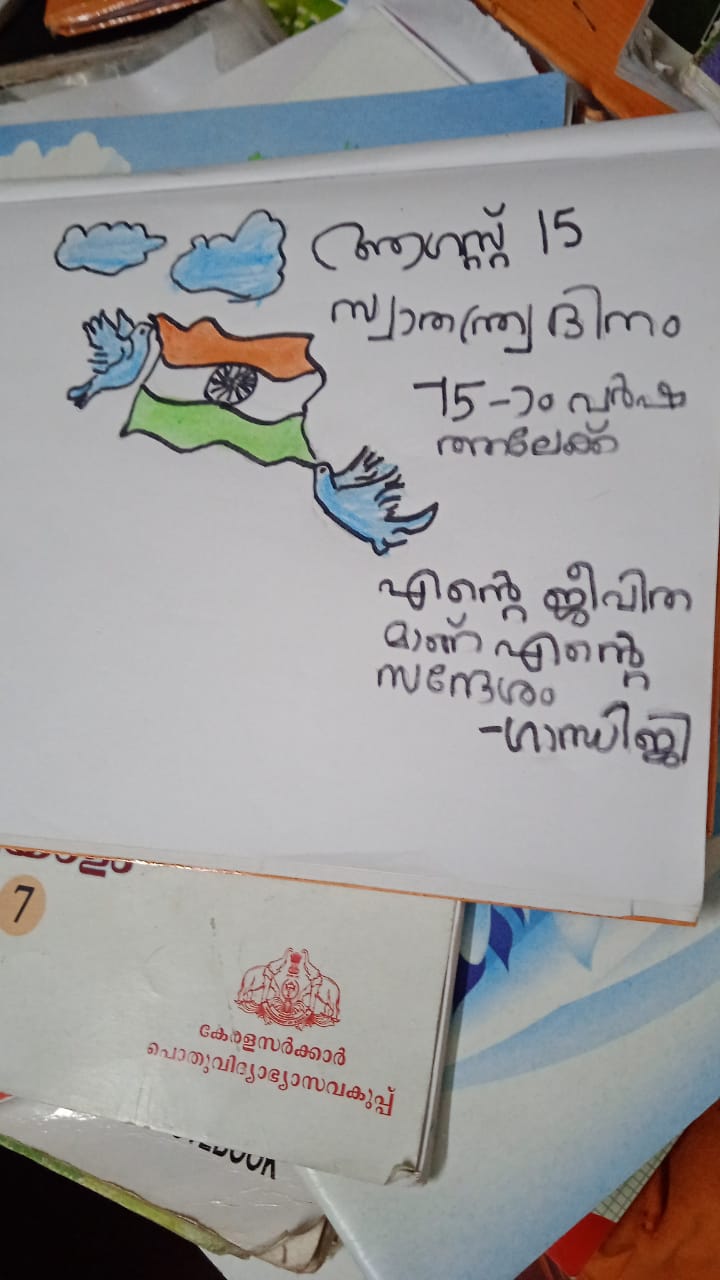 ആഗസ്റ്റ് 15
സ്വാതന്ത്ര്യ ദിനം
75-ാം വർഷ
ത്തിലേക്ക്
എന്റെ ജീവിത
മാണ് എന്റെ
സന്ദേശം
-ഗാന്ധിജി
7
കേരളസർക്കാർ
പൊതുവിദ്യാഭ്യാസവകുപ്പ്